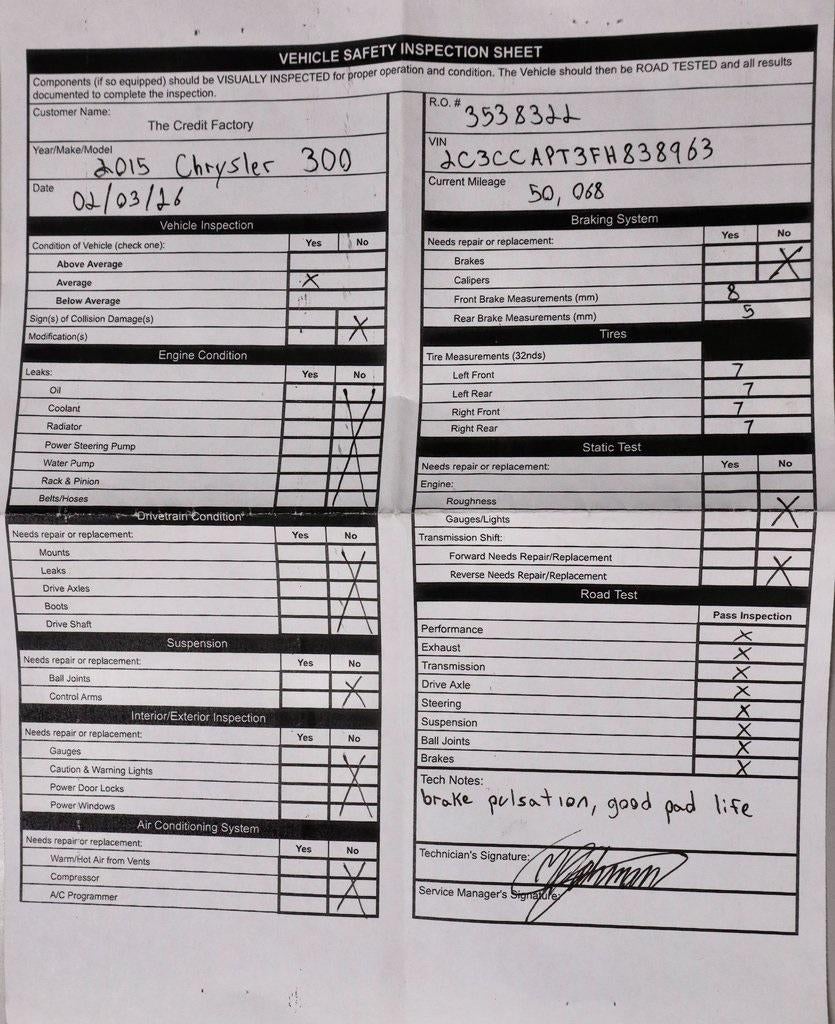 VEHICLE SAFETY INSPECTION SHEET
Components (if so equipped) should be VISUALLY INSPECTED for proper operation and condition. The Vehicle should then be ROAD TESTED and all results
documented to complete the inspection.
Customer Name:
The Credit Factory
Year/Make/Model
2015 Chrysler 300
Date
02/03/26
Vehicle Inspection
Condition of Vehicle (check one): Yes No
Above Average
Average X
Below Average
Sign(s) of Collision Damage(s)
Modification(s) X
Engine Condition
Leaks: Yes No
Oil
Coolant
Radiator
Power Steering Pump X
Water Pump
Rack & Pinion
Belts/Hoses
Drivetrain Condition
Needs repair or replacement: Yes No
Mounts
Leaks
Drive Axles X
Boots
Drive Shaft
Suspension
Needs repair or replacement: Yes No
Ball Joints
Control Arms X
Interior/Exterior Inspection
Needs repair or replacement: Yes No
Gauges
Caution & Warning Lights X
Power Door Locks
Power Windows
Air Conditioning System
Needs repair or replacement: Yes No
Warm/Hot Air from Vents
Compressor X
A/C Programmer
R.O. # 3538322
VIN
2C3CCAPT3FH838963
Current Mileage 50,068
Braking System
Needs repair or replacement: Yes No
Brakes X
Calipers
Front Brake Measurements (mm) 8
Rear Brake Measurements (mm) 5
Tires
Tire Measurements (32nds)
Left Front 7
Left Rear 7
Right Front 7
Right Rear 7
Static Test
Needs repair or replacement: Yes No
Engine:
Roughness X
Gauges/Lights
Transmission Shift:
Forward Needs Repair/Replacement X
Reverse Needs Repair/Replacement
Road Test
Pass Inspection
Performance X
Exhaust X
Transmission X
Drive Axle X
Steering X
Suspension X
Ball Joints X
Brakes X
Tech Notes:
brake pulsation, good pad life
Technician's Signature:
Service Manager's Signature: